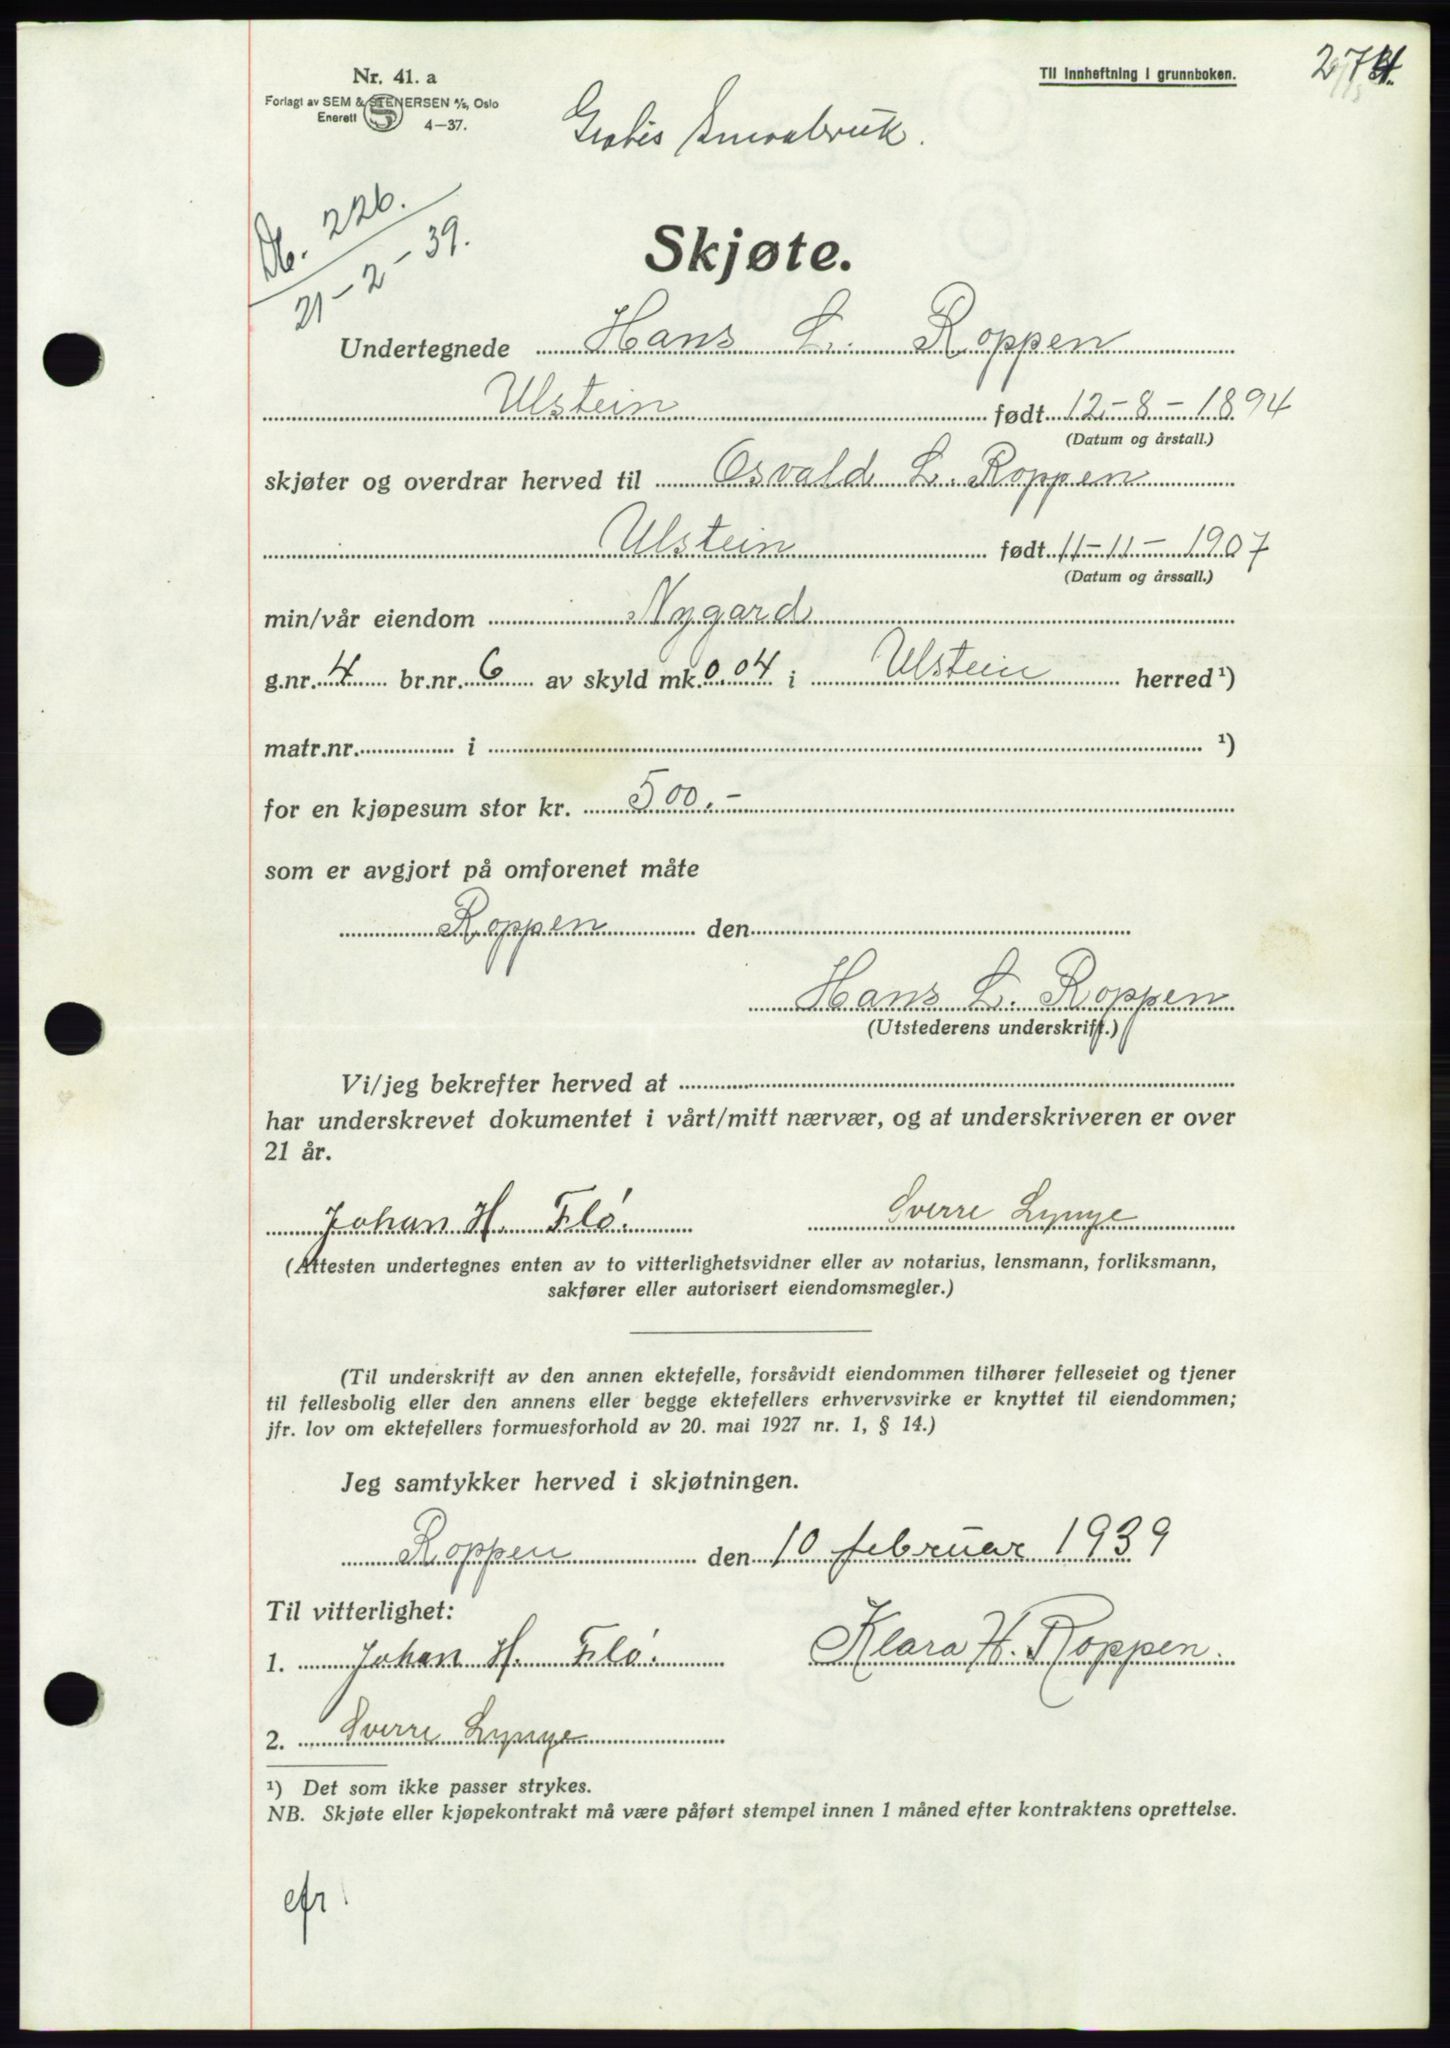 Nr. 41. a
Forlagt av SEM & STENERSEN A/S, Oslo
Enerett
4—37.
Til innheftning i grunnboken.
Gratis Smaabruk.
Db. 226.
21-2-39.
Skjøte.
Undertegnede Hans L. Roppen
Ulstein født 12-8-1894
(Datum og årstall.)
skjøter og overdrar herved til Osvald L. Roppen
Ulstein født 11-11-1907
(Datum og årssall.)
min/vår eiendom Nygard
g.nr. 4 br.nr. 6 av skyld mk. 0.04 i Ulstein herred ¹)
matr.nr. i ¹)
for en kjøpesum stor kr. 500.-
som er avgjort på omforenet måte
Roppen den
Hans L. Roppen
(Utstederens underskrift.)
Vi/jeg bekrefter herved at
har underskrevet dokumentet i vårt/mitt nærvær, og at underskriveren er over
21 år.
Johan H. Flø. Sverre Lynge
(Attesten undertegnes enten av to vitterlighetsvidner eller av notarius, lensmann, forliksmann,
sakfører eller autorisert eiendomsmegler.)
(Til underskrift av den annen ektefelle, forsåvidt eiendommen tilhører felleseiet og tjener
til fellesbolig eller den annens eller begge ektefellers erhvervsvirke er knyttet til eiendommen;
jfr. lov om ektefellers formuesforhold av 20. mai 1927 nr. 1, § 14.)
Jeg samtykker herved i skjøtningen.
Roppen den 10 februar 1939
Til vitterlighet:
1. Johan H. Flø. Klara H. Roppen.
2. Sverre Lynge
¹) Det som ikke passer strykes.
NB. Skjøte eller kjøpekontrakt må være påført stempel innen 1 måned efter kontraktens oprettelse.
efr.